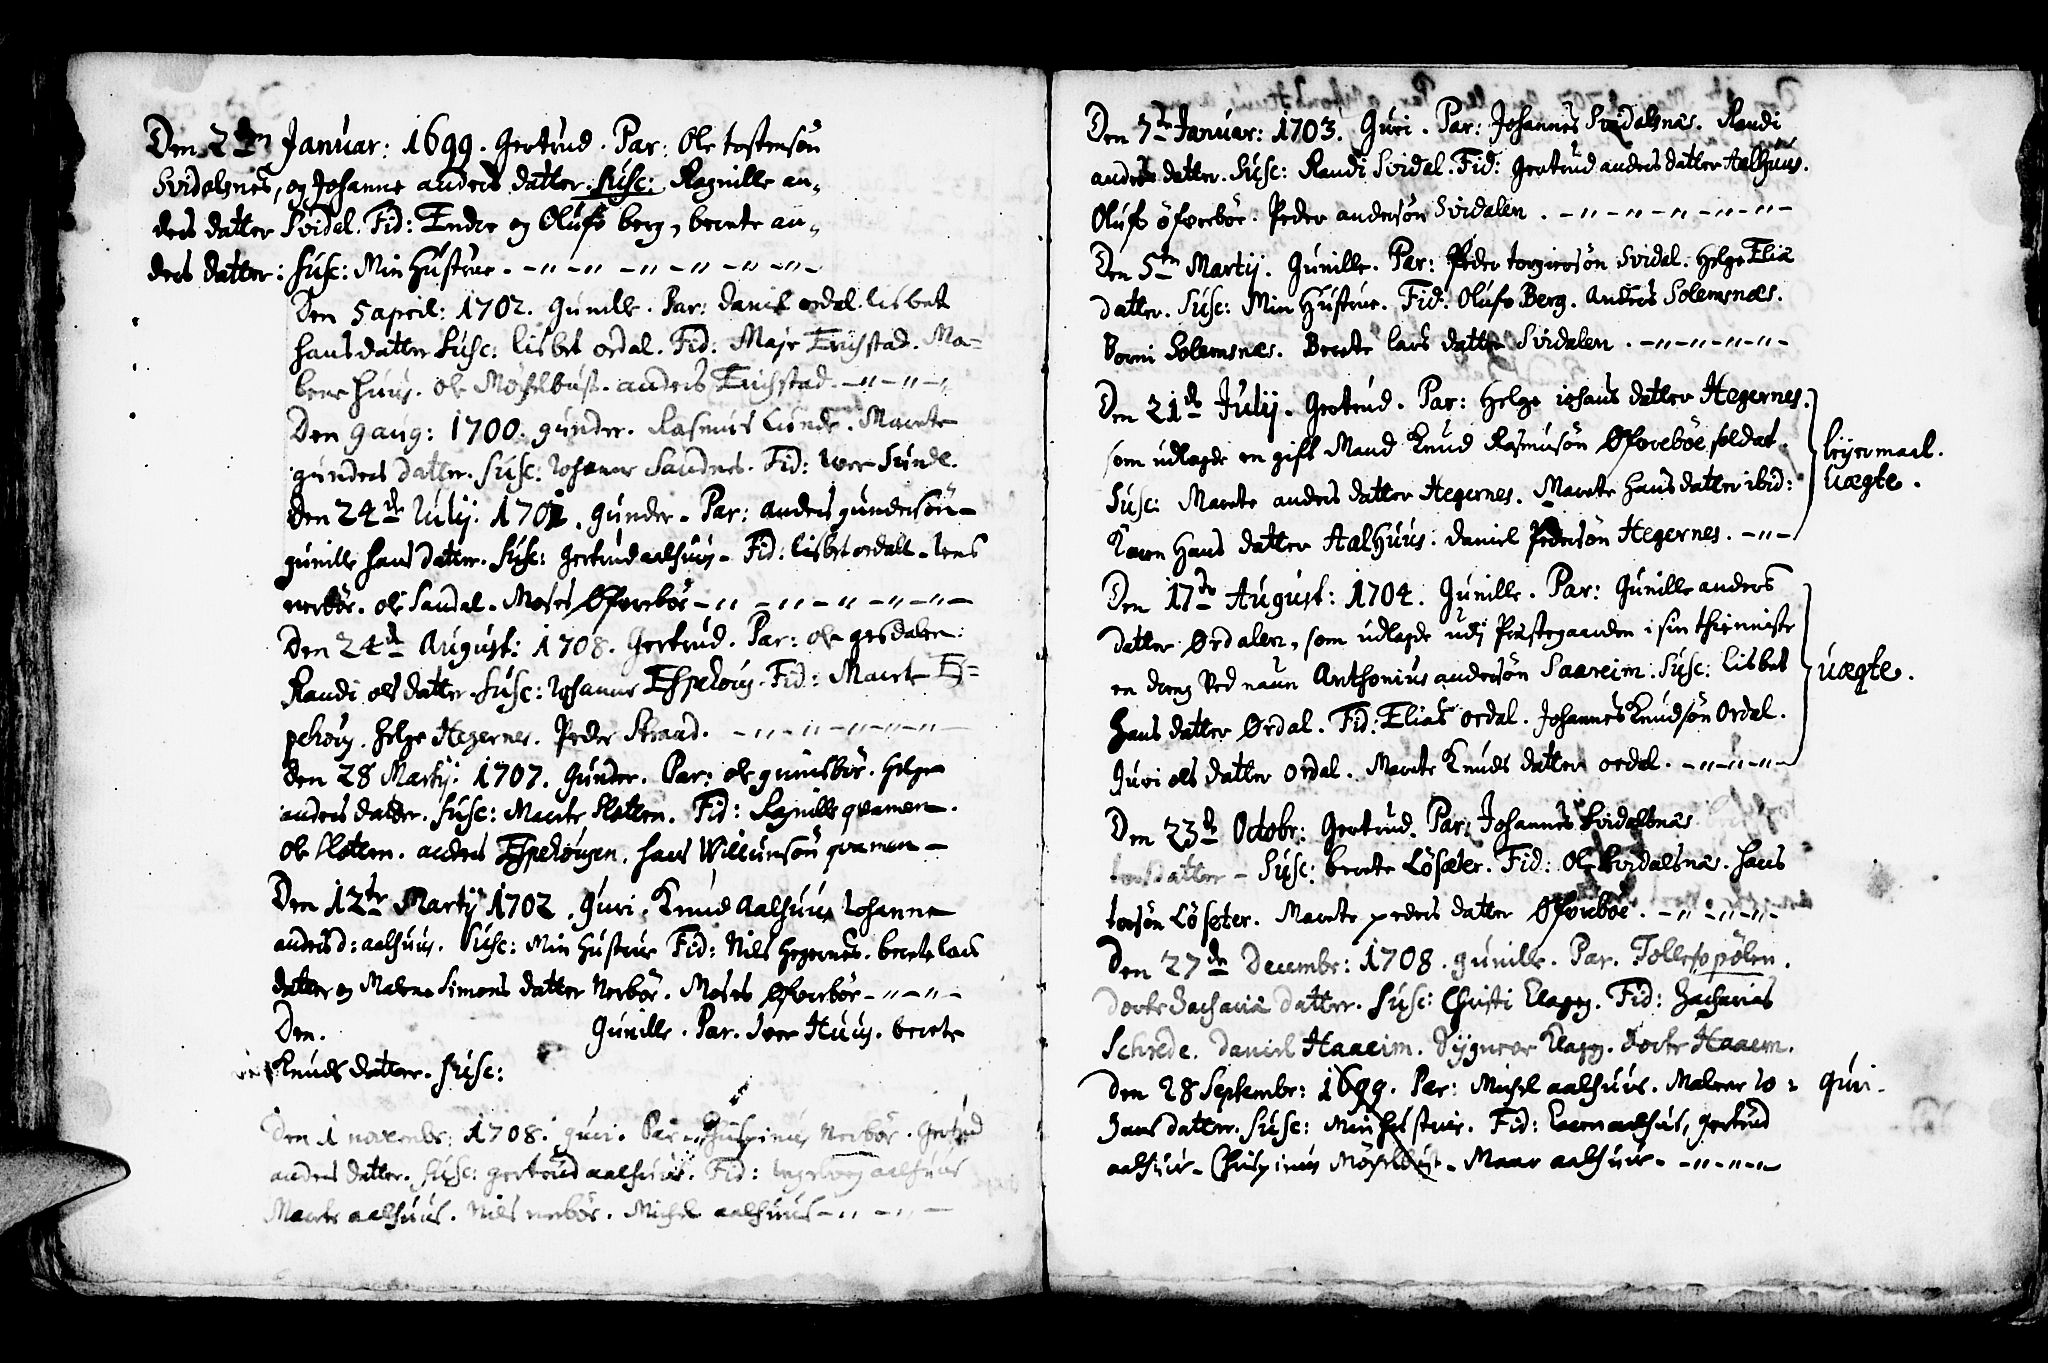 Den 2den Januar: 1699. Gertrud. Par: Ole tostensön
Svidalsnes, og Johanne anders datter. Susc: Ragnille an„
ders datter Svidal. Fid: Endre og Oluf berg, berete an„
ders datter: Susc: Min Hustrue. - „ - „ - „ - „ - „ -
Den 5 april: 1702. Gunille. Par: daniel ordal. lisbet
hans datter Susc: lisbet ordal. Fid: Maje Erichstad. Ma=
lene huus. ole Möchelbust. anders Erichstad. - „ - „ -
Den 9 aug: 1700. gunder. Rasmus Lunde. Marete
gunders datter. Susc: Johanne Sandnes. Fid: Iver Sunde.
Den 24de Iulij. 1701. gunder. Par: anders gundersön -
gunille hans datter. Susc: Gertrud aalhuus - Fid: lisbet ordall - Iens
nerbör. ole Sandal. Moses Øfverbör - „ - „ - „ - „ -
Den 24de August: 1708. Gertrud. Par: ole gesdalen:
Randi ols datter. Susc: Johanne Espehoug. Fid: Marete Es=
pehoug. helge Hegernes. Peder Straad. - „ - „ - „ -
Den 28 Martij. 1707. Gunder. Par: ole gunisbör. helge
anders datter. Susc: Marete Slotten. Fid: Ragnille qvamen -
Ole Slotten. anders Espehougen. hans Willumsön qvamen -
Den 12te Martij 1702. Guri. Knud Aalhuus Johanne
anders d: aalhuus. Susc: Min Hustrue Fid: Nils Hegernes. berete lars
datter og Malene Simons datter Nerbör. Moses Øfverbör - „ - „ -
Den. Gunille. Par. Iver Huus. berete
Knuds datter. Susc:
Den 1 novembr: 1708. guri. Par Chrispinus Nerbör. Gertrud
anders datter. Susc: gertrud aalhuus. Fid: Ingeborg aalhuus
Marete aalhuus. Nils nerbör. Michel aalhuus - „ - „ -
Den 7de Januar: 1703. Guri. Par: Johannes Svidalsnæs. Randi
anders datter. Susc: Randi Svidal. Fid: Gertrud anders datter Aalhuus.
Oluf öfverbör. Peder andersön Svidalen. - „ - „ - „ - „ -
Den 5te Martij. Gunille. Par: Peder torgiersön Svidal. Helge Eliæ
datter. Susc: Min Hustrue. Fid: Oluf Berg. Anders Solemsnæs.
Borni Solemsnæs. Berete lars datter Svidalen. - „ - „ - „ -
Den 21de Julij. Gertrud. Par: Helge iohans datter Hegernes.
som udlagde en gift Mand Knud Rasmusön Øfverböe soldat.
Susc: Marete anders datter Hegernes. Marete hans datter ibid:
Karen Hans datter Aalhuus. daniel Pedersön Hegernes. - „ -
leijermaal.
Uægte.
Den 17de August: 1704. Gunille. Par: Gunille anders
datter Ørdalen, som udlagde udj Præstegaarden i sin thienniste
en dreng Ved naun Anthonius andersön Saareim. Susc: lisbet
hans datter Ørdal. Fid: Elias ordal. Johannes Knudsön Ordal.
Guri ols datter Ordal. Marete Knuds datter ordal. - „ - „ -
uægte.
Den 23de Octobr: Gertrud. Par: Johannes Svidalsnæs
datter - Susc: berete Lösæter. Fid: Ole Svidalsnæs. hans
Lösæter. Marete peders datter Øfverböe. - „ - „ -
Den 27de Decembr: 1708. gunille. Par. Tolless pölen.
dorte Zachariæ datter. Susc: Christi Klagg. Fid: Zacharias
Schrede. daniel Haaeim. Syneve Klagg. dorte Haaem.
Den 28 Septembr: 1699. Par: Michel aalhuus. Malene Jo=
hans datter. Susc: Min Hustrue. Fid: Karen aalhuus, gertrud
aalhuus - Chrispinus Möchelbust - Maar aalhuus - „ - „ -
guri.